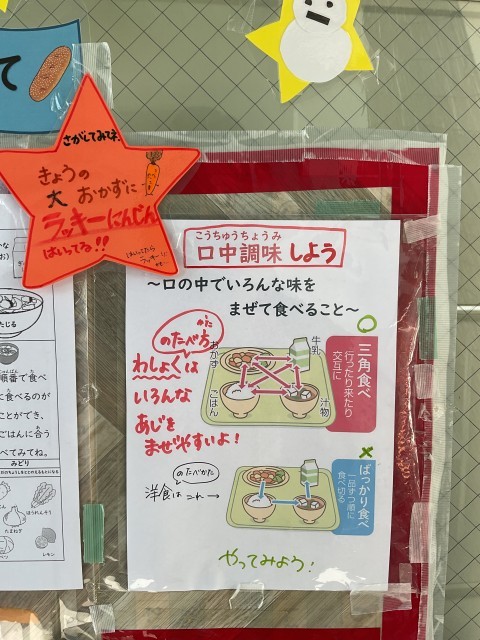 て
さがしてみてネ
きょうの
大 おかずに
ラッキーにんじん
はいってる!!
はいってたら
ラッキー!!
こうちゅうちょうみ
口中調味 しよう
〜口の中でいろんな味を
まぜて食べること〜
わしょくは
のたべ方
かた
いろんな
あじを
まぜやすいよ!
おかず
牛乳
ごはん
汁物
三角食べ
行ったり来たり
交互に
洋食は
のたべかた
これ→
ばっかり食べ
一品ずつ順に
食べ切る
やってみよう!
たじる
順番で食べ
に食べるのが
ことができ、
ごはんに合う
べてみてね。
みどり
ほうれんそう
たまねぎ
レモン